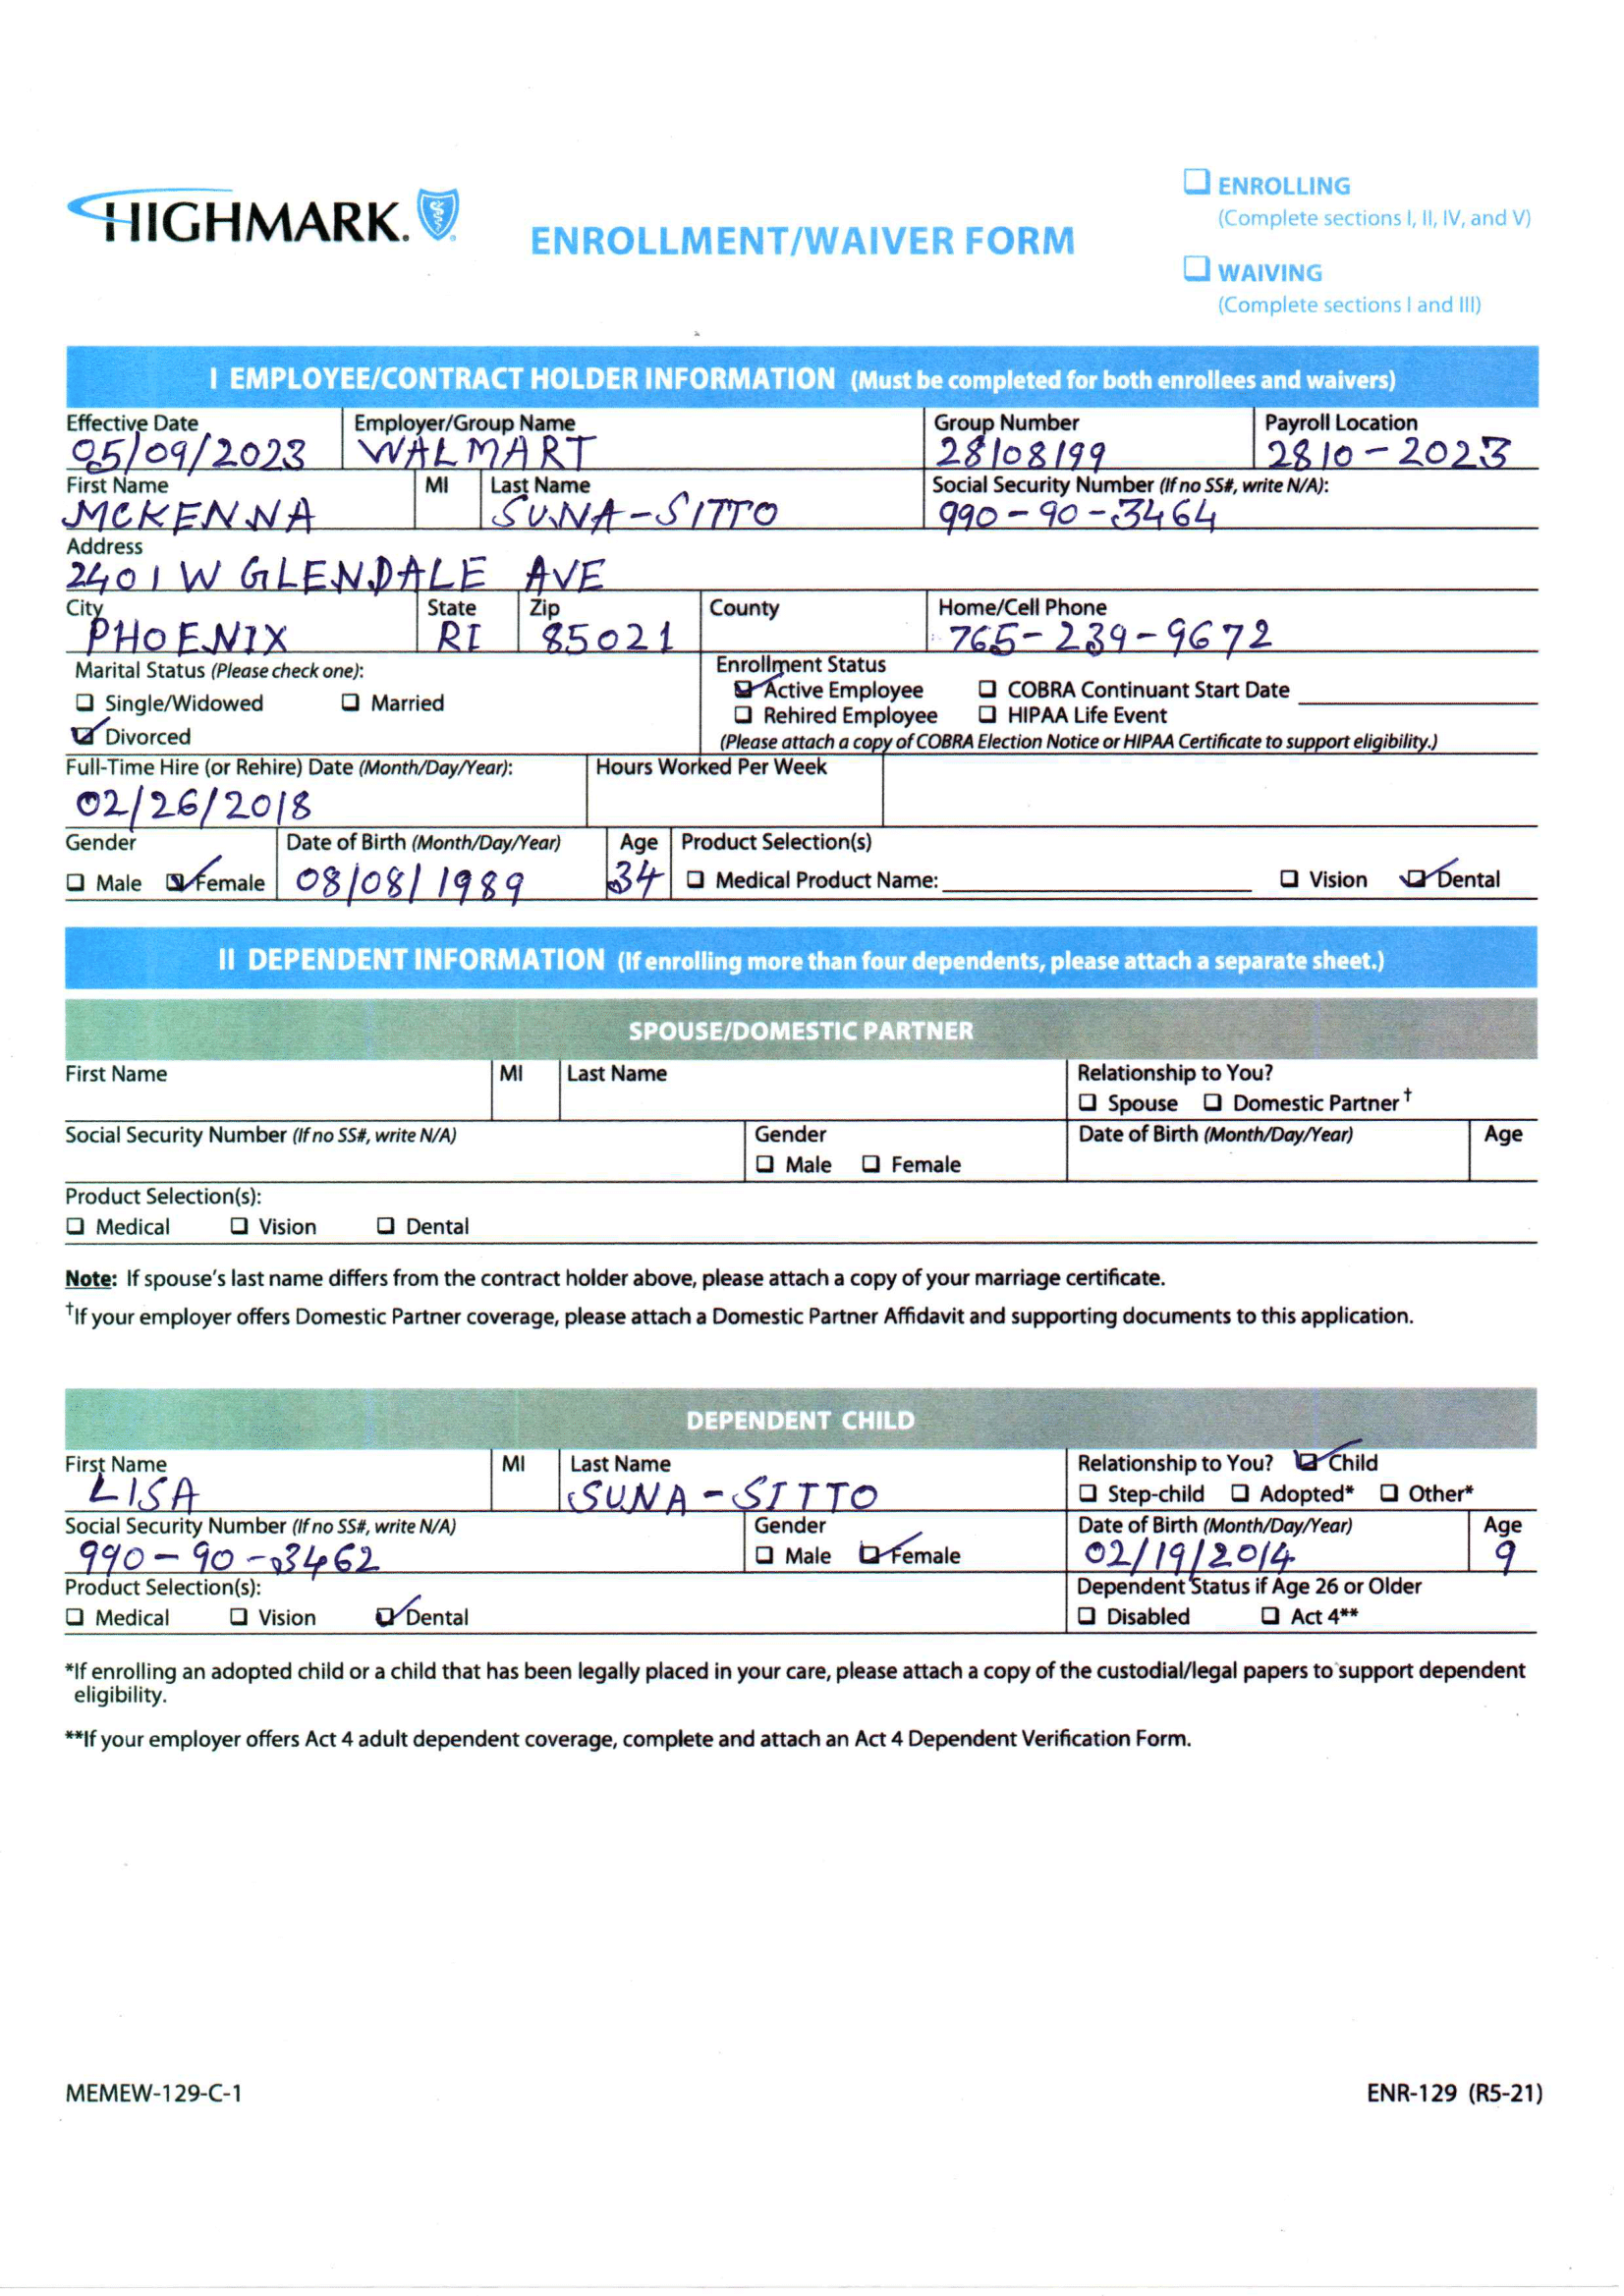 HIGHMARK.
ENROLLMENT/WAIVER FORM
ENROLLING
(Complete sections I, II, IV, and V)
WAIVING
(Complete sections I and III)
I EMPLOYEE/CONTRACT HOLDER INFORMATION (Must be completed for both enrollees and waivers)
Effective Date Employer/Group Name Group Number Payroll Location
05/09/2023 WALMART 28108199 2810-2023
First Name MI Last Name Social Security Number (If no SS#, write N/A):
MCKENNA SUNA-SITTO 990-90-3464
Address
2401 W GLENDALE AVE
City State Zip County Home/Cell Phone
PHOENIX RI 85021 765-239-9672
Marital Status (Please check one): Enrollment Status
Single/Widowed Married Active Employee COBRA Continuant Start Date
Rehired Employee HIPAA Life Event
Divorced (Please attach a copy of COBRA Election Notice or HIPAA Certificate to support eligibility.)
Full-Time Hire (or Rehire) Date (Month/Day/Year): Hours Worked Per Week
02/26/2018
Gender Date of Birth (Month/Day/Year) Age Product Selection(s)
Male Female 08/08/1989 34 Medical Product Name: Vision Dental
II DEPENDENT INFORMATION (If enrolling more than four dependents, please attach a separate sheet.)
SPOUSE/DOMESTIC PARTNER
First Name MI Last Name Relationship to You?
Spouse Domestic Partner†
Social Security Number (If no SS#, write N/A) Gender Date of Birth (Month/Day/Year) Age
Male Female
Product Selection(s):
Medical Vision Dental
Note: If spouse's last name differs from the contract holder above, please attach a copy of your marriage certificate.
†If your employer offers Domestic Partner coverage, please attach a Domestic Partner Affidavit and supporting documents to this application.
DEPENDENT CHILD
First Name MI Last Name Relationship to You? Child
LISA SUNA-SITTO Step-child Adopted* Other*
Social Security Number (If no SS#, write N/A) Gender Date of Birth (Month/Day/Year) Age
990-90-3462 Male Female 02/19/2014 9
Product Selection(s): Dependent Status if Age 26 or Older
Medical Vision Dental Disabled Act 4**
*If enrolling an adopted child or a child that has been legally placed in your care, please attach a copy of the custodial/legal papers to support dependent
eligibility.
**If your employer offers Act 4 adult dependent coverage, complete and attach an Act 4 Dependent Verification Form.
MEMEW-129-C-1 ENR-129 (R5-21)